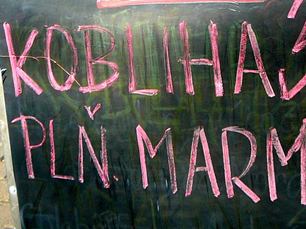 KOBLIHA
PLŇ. MARM